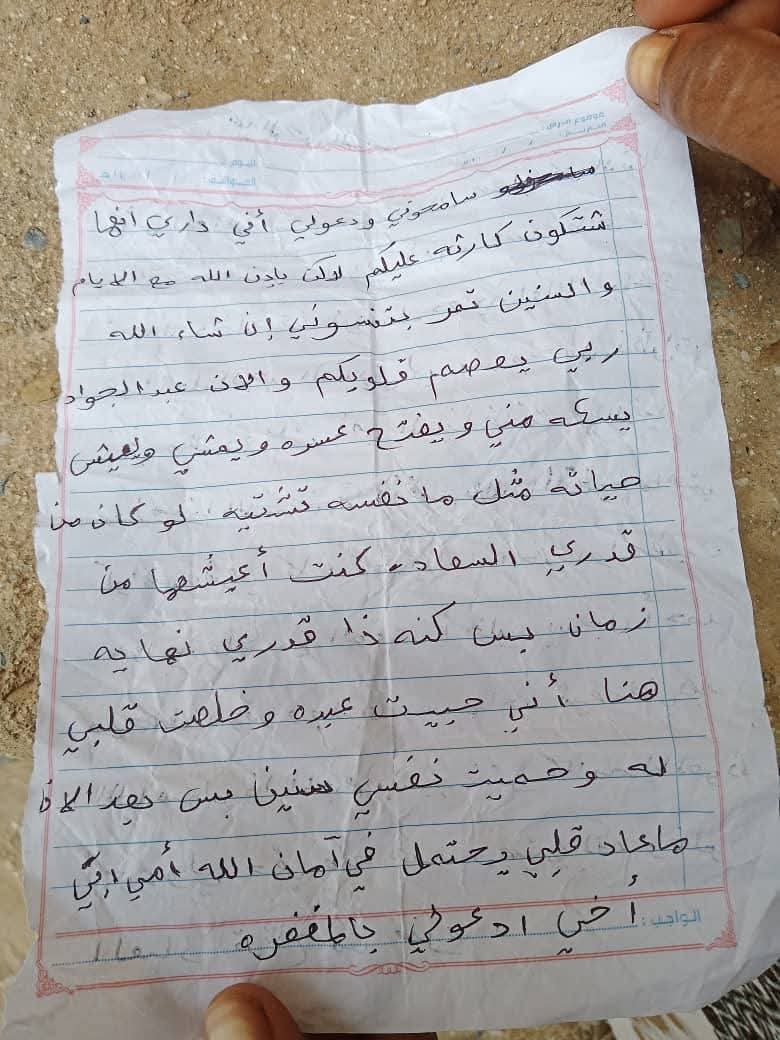 موضوع الدرس:
اليوم
سامحوني ودعولي أني داري انها
شتكون كارثه عليكم لاكن باذن الله مع الايام
والسنين تمر بتنسوني إن شاء الله
ربي يعصم قلوبكم والان عبدالجواد
مني ويفتح عسره ويمشي ويعيش
حياته مثل ما نفسه تشتيه لو كان من
قدري السعاده كنت أعيشها من
زمان بس كنه ذا قدري نهايه
هنا أني حبيت عبده وخلصت قلبي
له وحميت نفسي سنين بس بعد الان
ماعاد قلبي يحتمل في آمان الله أمي
أخي ادعولي بالمغفره
الواجب: